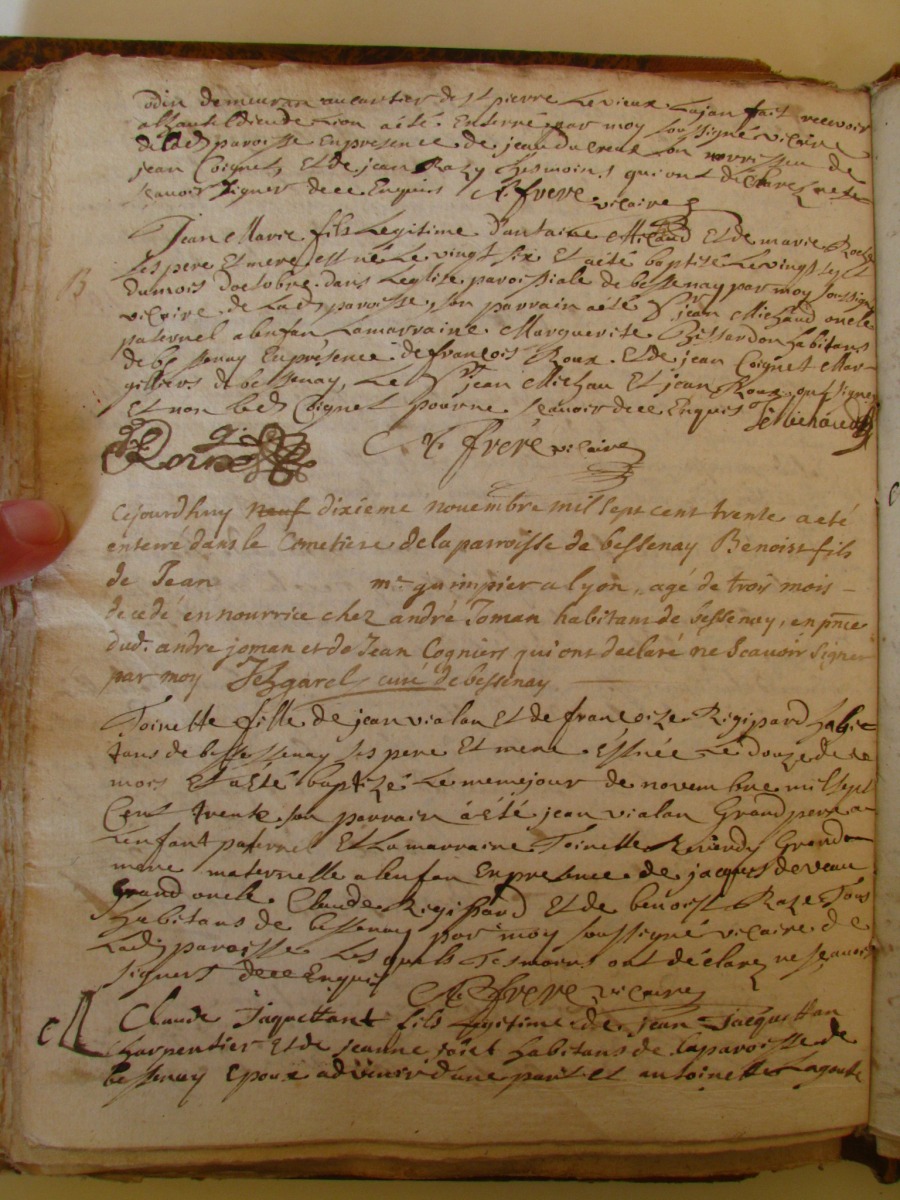 odin demeuran au cartier de st pierre le vieux Layan fait recevoir
a lhautel dieu de Lion a été Enterré par moy soussigné vicaire
de lad paroisse En presence de jean ducreux son nourrissier de
jean Coignet, Et de jean Raze tesmoins qui ont declaré ne
scavoir signer de ce Enquis A. frere vicaire
Jean Marie fils Legitime D'antoine Michaud Et de marie
ses pere Et mere est né le vingt six Et a été baptisé le vingt sept
B
du mois d'octobre dans l'eglise paroissiale de bessenay par moy soussigné
vicaire de Lad paroisse, son parrain a été Sr jean Michaud oncle
paternel a lenfan La marraine Marguerite Bissardon habitans
de bessenay En présence de françois Roux Et de jean Coignet Mar-
gilliers de bessenay, Le Sr jean Michau Et jean Roux ont signé
Et non led Coignet pour ne scavoir de ce Enquis
JeMichaud
Roux
A. frere vicaire
cejourdhuy neuf dixieme novembre mil sept cent trente a eté
enterré dans le Cometiere de la parroisse de bessenay Benoist fils
de Jean me guimpier a lyon, agé de trois mois
decedé en nourrice chez andré Joman habitant de bessenay, en pnce
dud. andre joman et de Jean Cogniers qui ont declaré ne scavoir signer
par moy curé de bessenay
Toinette fille de jean vialan Et de françoize Rigipard habi-
tans de bessenay ses pere Et mere Est née Le douze de ce
mois Et a Eté baptizé Le meme jour de novembre mil sept
Cent trente son parrain a été jean vialan Grand pere a
L'enfant paternel Et La marraine Toinette Grand
mere maternelle a lenfan En presence de jacques deveau
grand oncle Claude Rigipard Et de benoist Raze Tous
habitans de bessenay par moy soussigné vicaire de
Lad paroisse Les quels Tesmoins ont déclaré ne scavoir
signer de ce Enquis A. frere vicaire
Claude Jaquettant fils Legitime de jean Jacquettan
charpentier Et de jeanne habitans de la paroisse de
bessenay Epoux advenir d'une part et antoinette